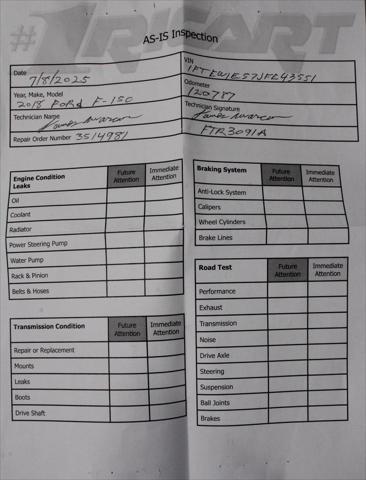 #1RICART
AS-IS Inspection
Date 7/8/2025
VIN 1FTEW1E57JFE43551
Year, Make, Model 2018 FORd F-150
Odometer 120787
Technician Name
Technician Signature
Repair Order Number 3514981
FTR3091A
Engine Condition Future Attention Immediate Attention
Leaks
Oil
Coolant
Radiator
Power Steering Pump
Water Pump
Rack & Pinion
Belts & Hoses
Transmission Condition Future Attention Immediate Attention
Repair or Replacement
Mounts
Leaks
Boots
Drive Shaft
Braking System Future Attention Immediate Attention
Anti-Lock System
Calipers
Wheel Cylinders
Brake Lines
Road Test Future Attention Immediate Attention
Performance
Exhaust
Transmission
Noise
Drive Axle
Steering
Suspension
Ball Joints
Brakes